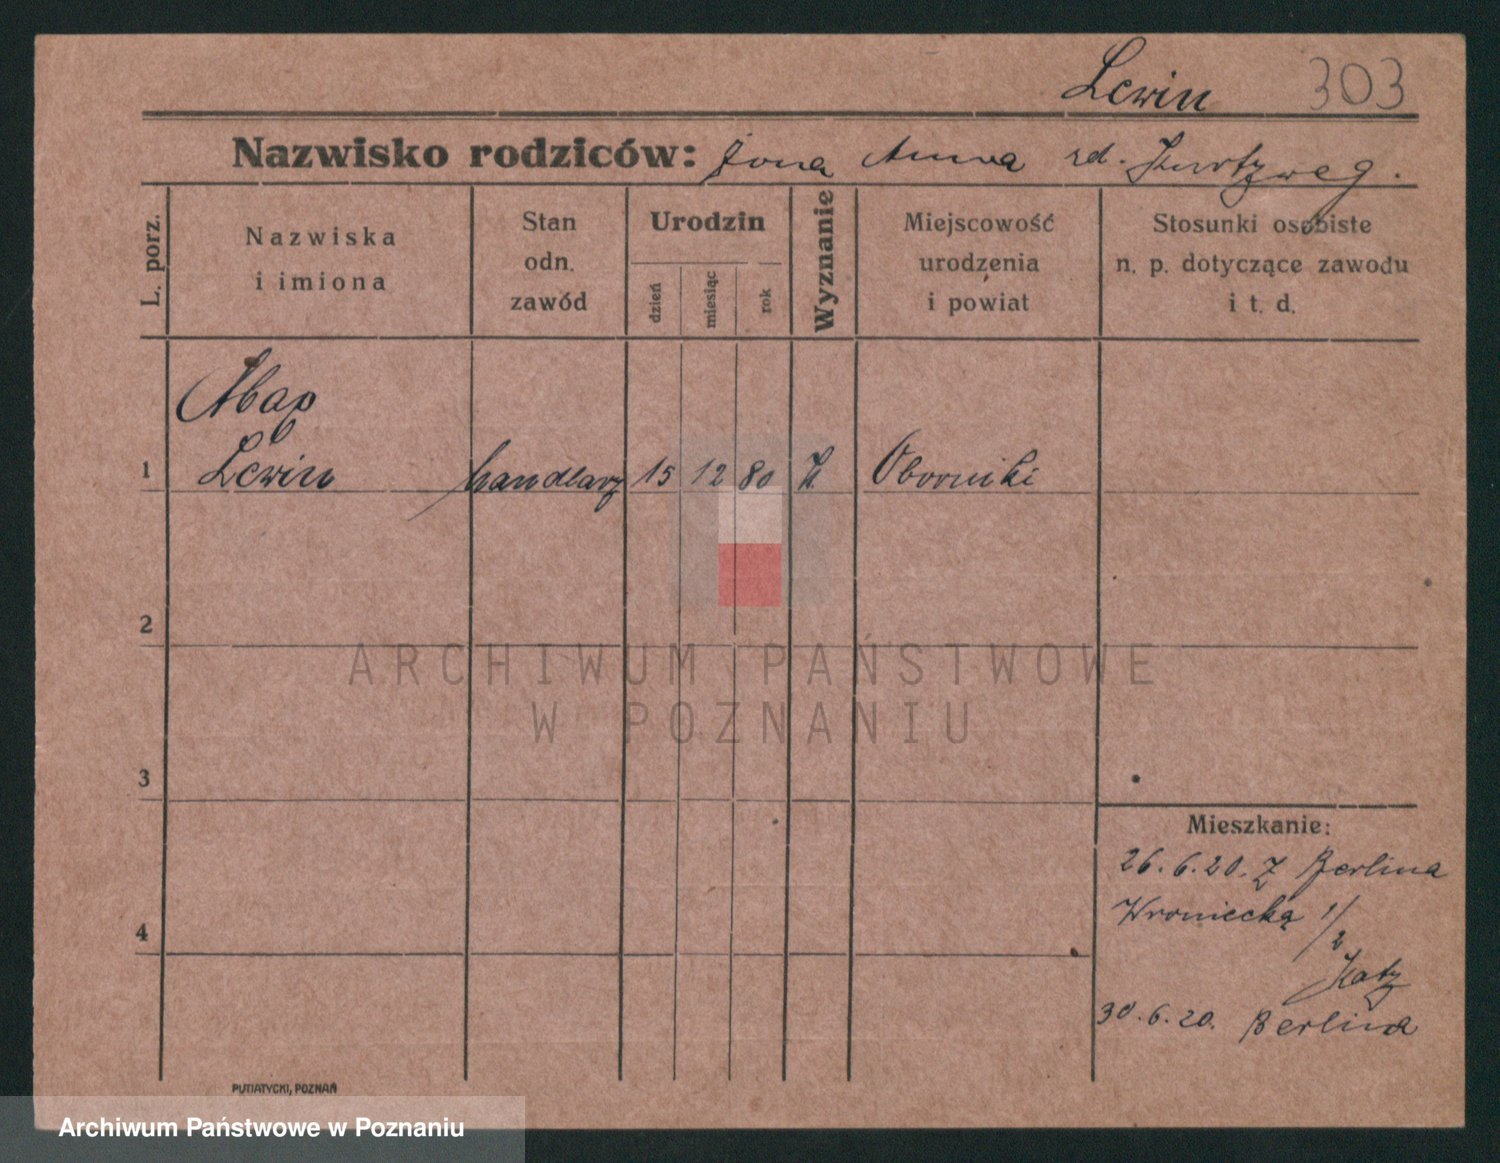 Lewin 303
Nazwisko rodziców: Jona Anna rd. Kurtzweg.
L. porz.
Nazwiska
i imiona
Stan
odn.
zawód
Urodzin
dzień
miesiąc
rok
Wyznanie
Miejscowość
urodzenia
i powiat
Stosunki osobiste
n. p. dotyczące zawodu
i t. d.
1
Lewin handlarz 15 12 80 Oborniki
2
3
4
Mieszkanie:
26.6.20. Z Berlina
Wroniecka 1/2
Katz
30.6.20. Berlina
PUTIATYCKI, POZNAŃ
ARCHIWUM PAŃSTWOWE
W POZNANIU
Archiwum Państwowe w Poznaniu